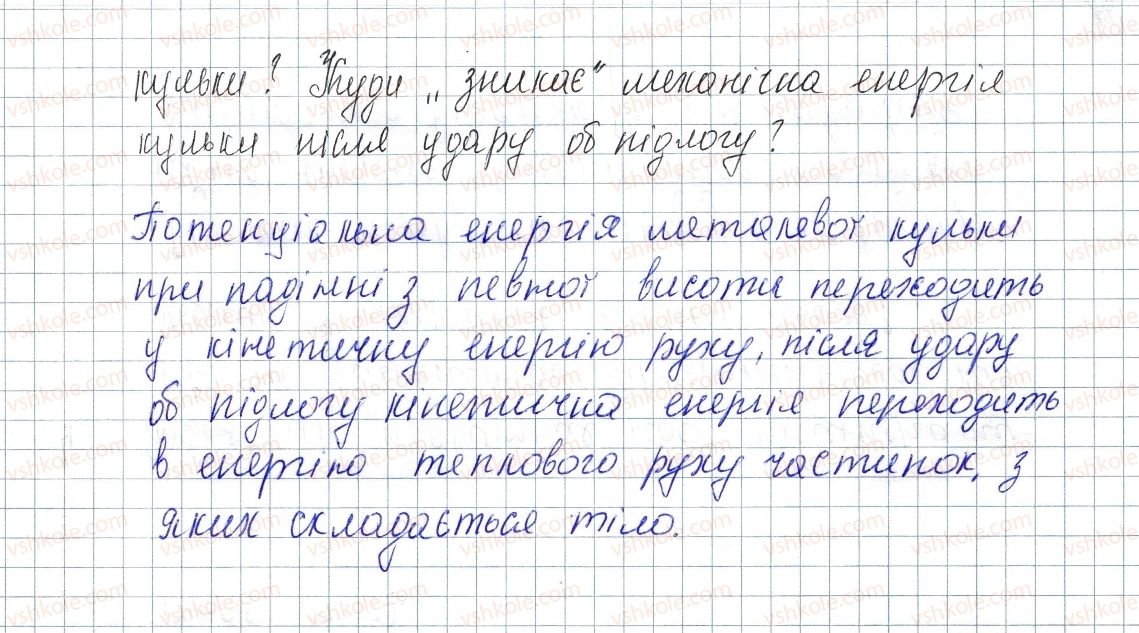 кульки? Куди „зникає" механічна енергія
кульки після удару об підлогу?
Потенціальна енергія металевої кульки
при падінні з певної висоти переходить
у кінетичну енергію руху, після удару
об підлогу кінетична енергія переходить
в енергію теплового руху частинок, з
яких складається тіло.